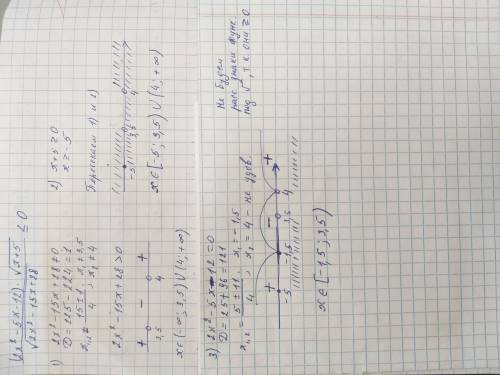 (2x²-5x-12)·√x+5 / √2x²-15x+28 ≤ 0
1) 2x²-15x+28≠0
D=225-224=1
x₁,₂≠ 15±1 / 4, x₁≠3,5
x₂≠4
2x²-15x+28>0
+ - +
3,5 4
x∈(-∞; 3,5)∪(4;+∞)
2) x+5≥0
x≥-5
Пересекаем 1) и 2)
-5 3,5 4
x∈[-5; 3,5)∪(4;+∞)
3) 2x²-5x-12=0
D=25+96=121
x₁,₂= 5±11 / 4, x₁=-1,5
x₂=4 - не удов.
+ - +
-5 -1,5 3,5 4
x∈[-1,5; 3,5)
Не будем
расс знаки функ.
под √, т.к. они ≥0